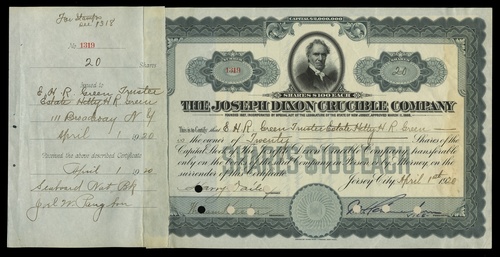 For Stamps
see 1318
No. 1319
20 Shares
Issued to
E. H. R. Green Trustee
Estate Hetty H R Green
111 Broadway N.Y
April 1 1920
Received the above described Certificate
April 1 1920
Seaboard Nat Bk
CAPITAL $2,000,000
1319
20
SHARES $100 EACH
THE JOSEPH DIXON CRUCIBLE COMPANY
This is to Certify that E. H. R. Green Trustee Estate Hetty H R Green
is the owner of Twenty Shares of the
Capital Stock of The Joseph Dixon Crucible Company, transferable
only on the Books of the Company in Person or by Attorney, on the
surrender of this Certificate.
Jersey City April 1st 1920